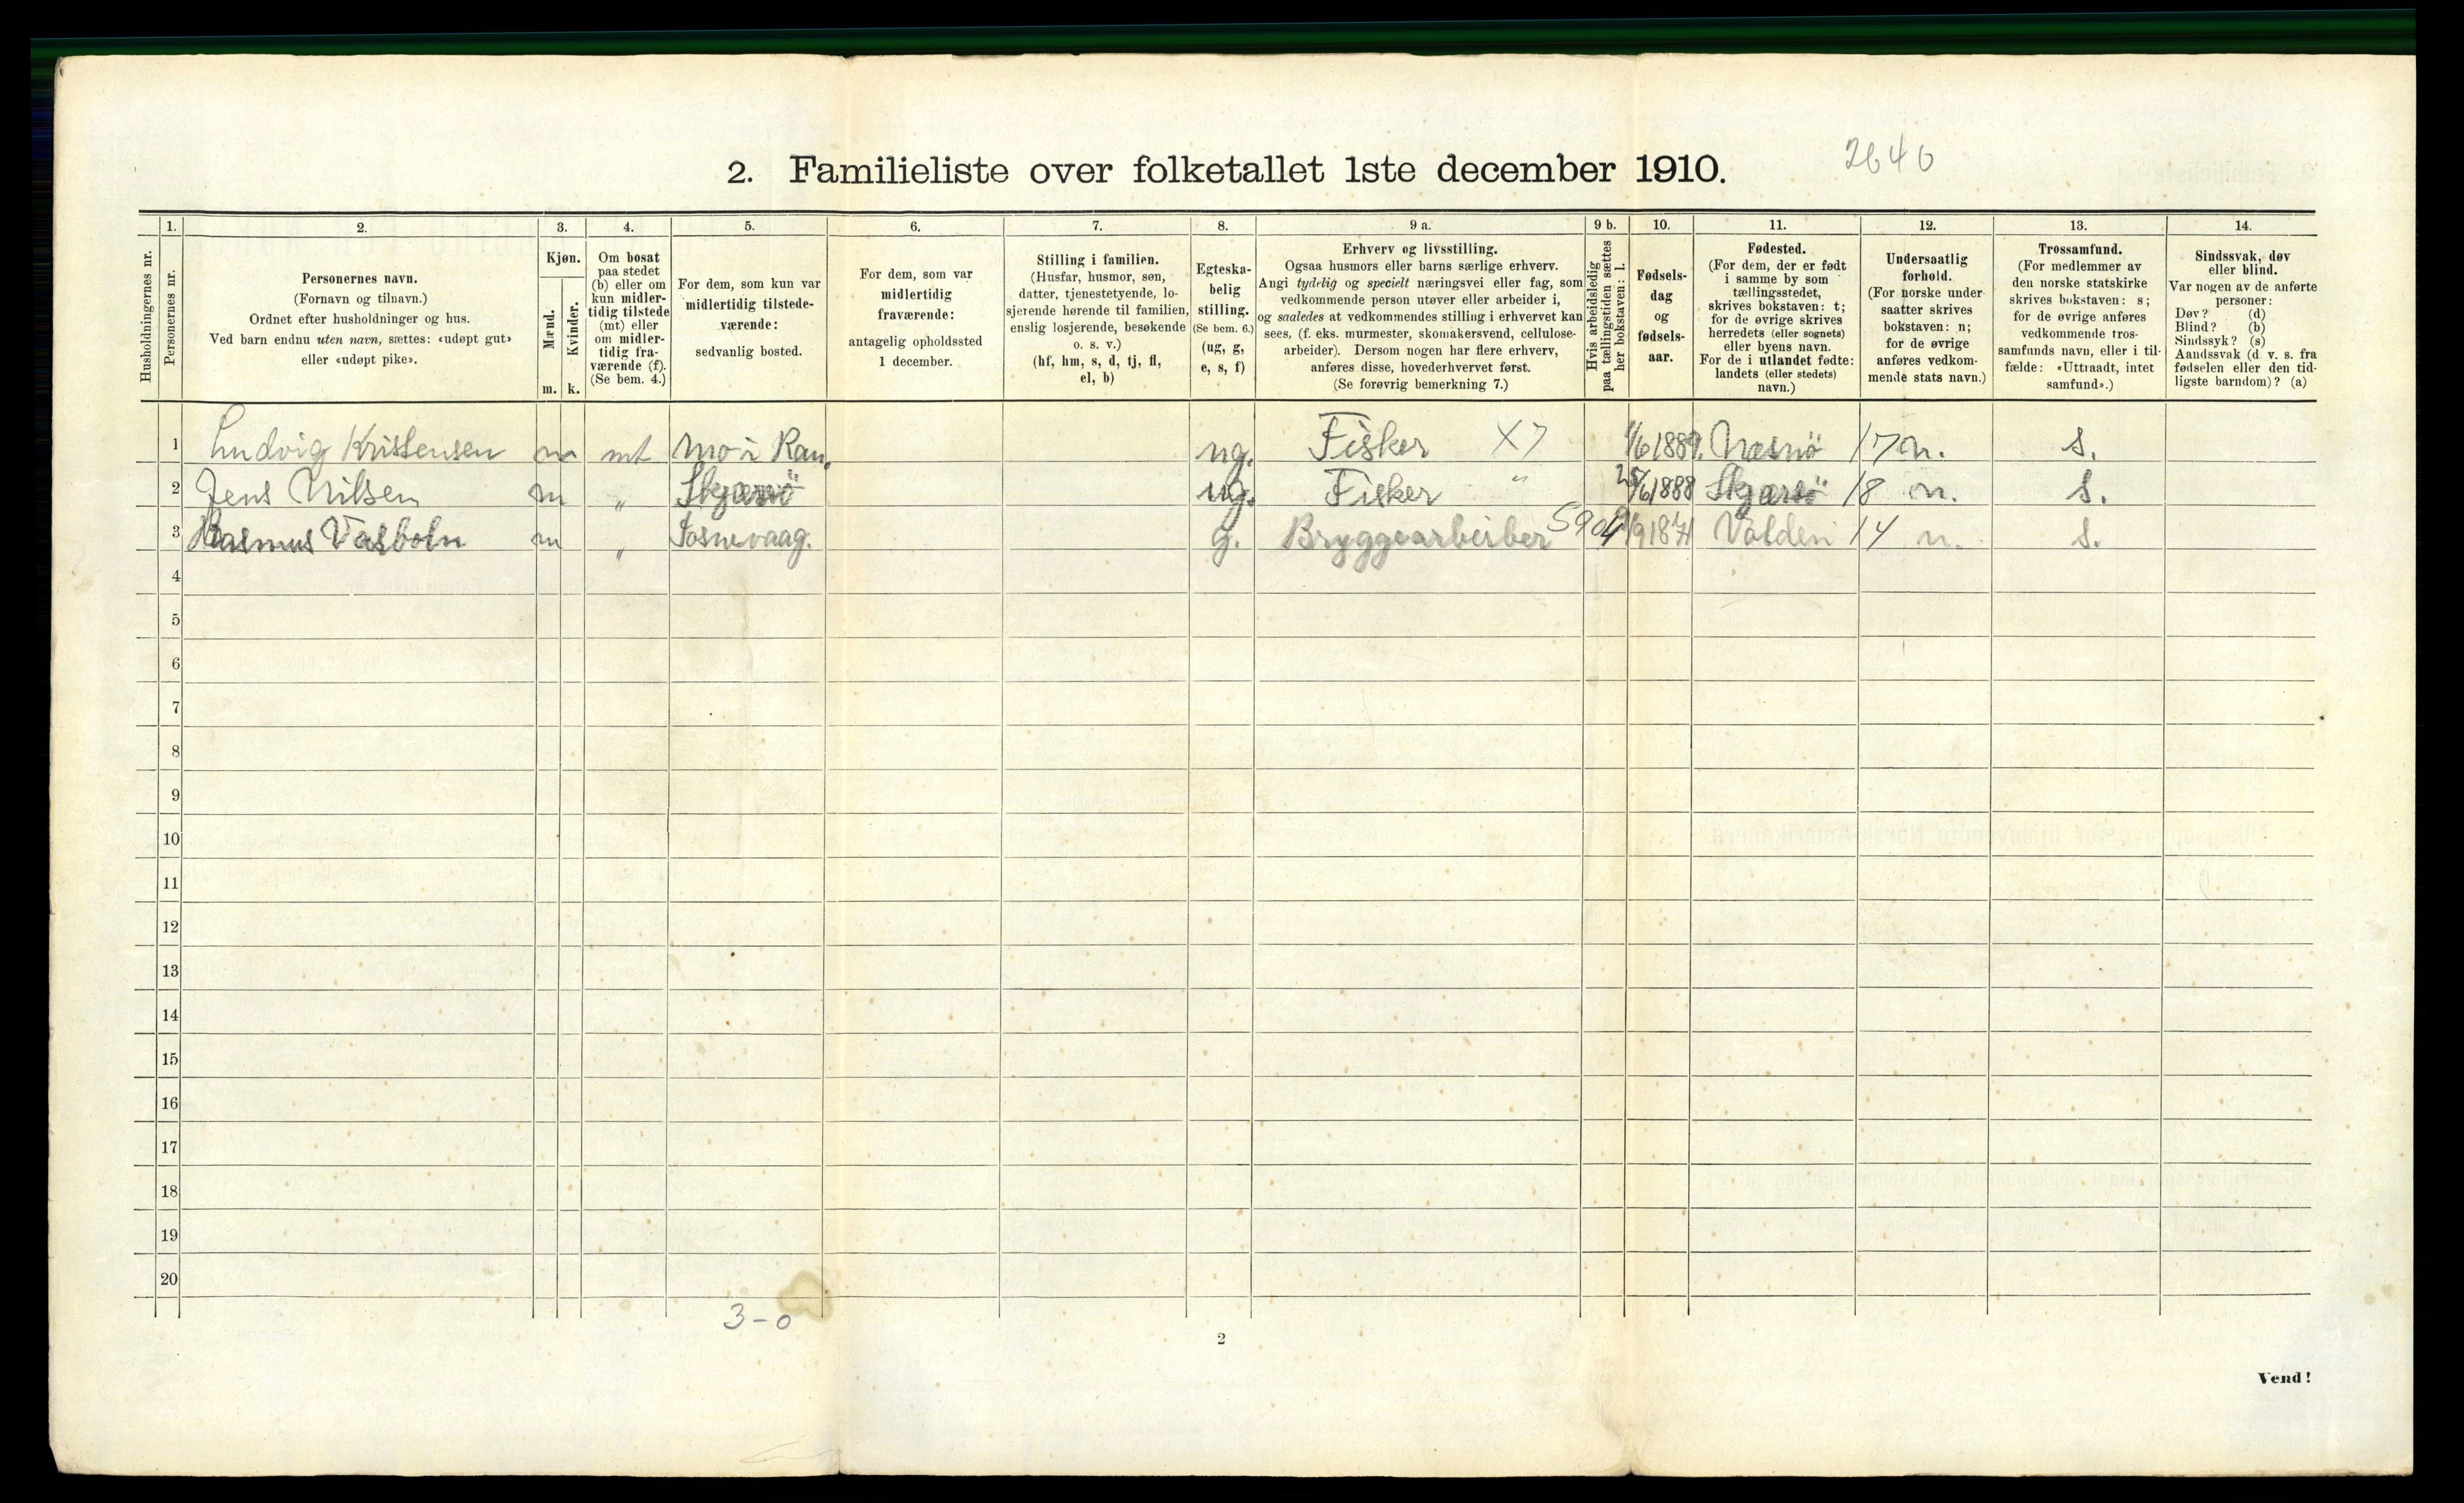 2. Familieliste over folketallet 1ste december 1910.
2640
1.
2.
3.
4.
5.
6.
7.
8.
9 a.
9 b.
10.
11.
12.
13.
14.
Husholdningernes nr.
Personernes nr.
Personernes navn.
(Fornavn og tilnavn.)
Ordnet efter husholdninger og hus.
Ved barn endnu uten navn, sættes: «udøpt gut»
eller «udøpt pike».
Kjøn.
Mænd.
Kvinder.
m.
k.
Om bosat
paa stedet
(b) eller om
kun midler-
tidig tilstede
(mt) eller
om midler-
tidig fra-
værende (f).
(Se bem. 4.)
For dem, som kun var
midlertidig tilstede-
værende:
sedvanlig bosted.
For dem, som var
midlertidig
fraværende:
antagelig opholdssted
1 december.
Stilling i familien.
(Husfar, husmor, søn,
datter, tjenestetyende, lo-
sjerende hørende til familien,
enslig losjerende, besøkende
o. s. v.)
(hf, hm, s, d, tj, fl,
el, b)
Egteska-
belig
stilling.
(Se bem. 6.)
(ug, g,
e, s, f)
Erhverv og livsstilling.
Ogsaa husmors eller barns særlige erhverv.
Angi tydelig og specielt næringsvei eller fag, som
vedkommende person utøver eller arbeider i,
og saaledes at vedkommendes stilling i erhvervet kan
sees, (f. eks. murmester, skomakersvend, cellulose-
arbeider). Dersom nogen har flere erhverv,
anføres disse, hovederhvervet først.
(Se forøvrig bemerkning 7.)
Hvis arbeidsledig
paa tællingstiden sættes
her bokstaven: l.
Fødsels-
dag
og
fødsels-
aar.
Fødested.
(For dem, der er født
i samme by som
tællingsstedet,
skrives bokstaven: t;
for de øvrige skrives
herredets (eller sognets)
eller byens navn.
For de i utlandet fødte:
landets (eller stedets)
navn.)
Undersaatlig
forhold.
(For norske under
saatter skrives
bokstaven: n;
for de øvrige
anføres vedkom-
mende stats navn.)
Trossamfund.
(For medlemmer av
den norske statskirke
skrives bokstaven: s;
for de øvrige anføres
vedkommende tros-
samfunds navn, eller i til-
fælde: «Uttraadt, intet
samfund».)
Sindssvak, døv
eller blind.
Var nogen av de anførte
personer:
Døv? (d)
Blind? (b)
Sindssyk? (s)
Aandssvak (d. v. s. fra
fødselen eller den tid-
ligste barndom)? (a)
1 Ludvig Kristensen m mt Mo i Ran. ug. Fisker X7 1/6 1889. Næsnö 17 n. s.
2 Jens Nilsen m „ Skjærvö ug. Fisker " 25/6 1888 18 n. s.
3 Rasmus m „ Fosnevaag. g. Bryggearbeiber 5904 Volden 14 n. s.
4
5
6
7
8
9
10
11
12
13
14
15
16
17
18
19
20
3 - 0
2
Vend!